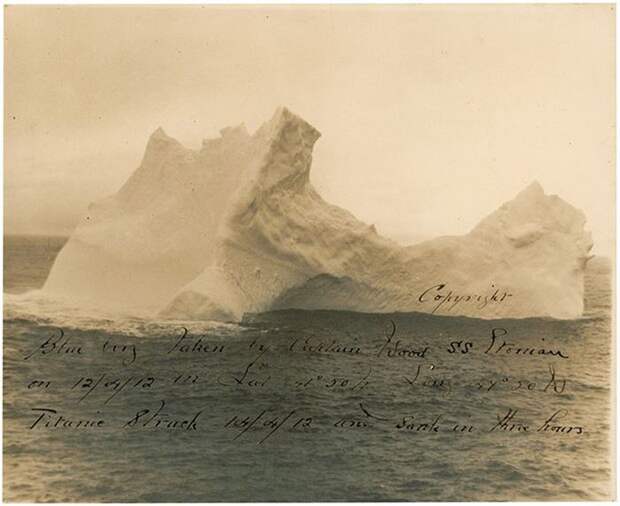 Copyright
Blue berg taken by Captain Wood SS Etonian
on 12/4/12 in Lat 41° 50 N Long 49° 50 W
Titanic struck 14/4/12 and sank in three hours